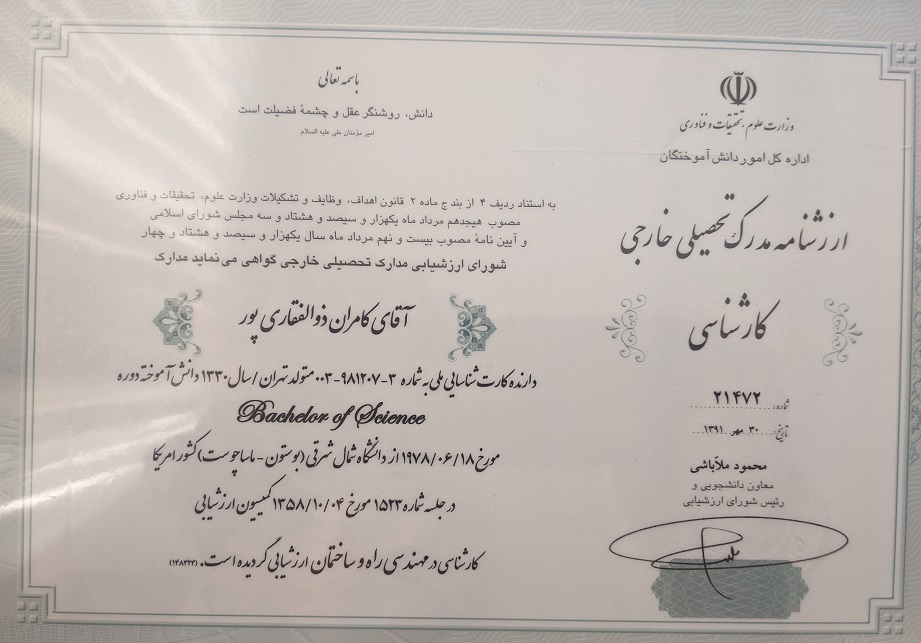 وزارت علوم، تحقیقات و فناوری
اداره کل امور دانش آموختگان
ارزشنامه مدرک تحصیلی خارجی
کارشناسی
شماره: ۲۱۴۷۲
تاریخ: ۳۰ مهر ۱۳۹۱
محمود ملاّباشی
معاون دانشجویی و
رئیس شورای ارزشیابی
باسمه تعالی
دانش، روشنگر عقل و چشمهٔ فضیلت است
امیر مؤمنان علی علیه السلام
به استناد ردیف ۴ از بند ج ماده ۲ قانون اهداف، وظایف و تشکیلات وزارت علوم، تحقیقات و فناوری
مصوب هیجدهم مرداد ماه یکهزار و سیصد و هشتاد و سه مجلس شورای اسلامی
و آیین نامهٔ مصوب بیست و نهم مرداد ماه سال یکهزار و سیصد و هشتاد و چهار
شورای ارزشیابی مدارک تحصیلی خارجی گواهی می نماید مدارک
آقای کامران ذوالفقاری پور
دارنده کارت شناسایی ملی به شماره ۳-۹۸۱۲۰۷-۰۰۳ متولد تهران / سال ۱۳۳۰ دانش آموخته دوره
Bachelor of Science
مورخ ۱۹۷۸/۰۶/۱۸ از دانشگاه شمال شرقی (بوستون - ماساچوست) کشور امریکا
در جلسه شماره ۱۵۲۳ مورخ ۱۳۵۸/۱۰/۰۴ کمیسیون ارزشیابی
کارشناسی در مهندسی راه و ساختمان ارزشیابی گردیده است.